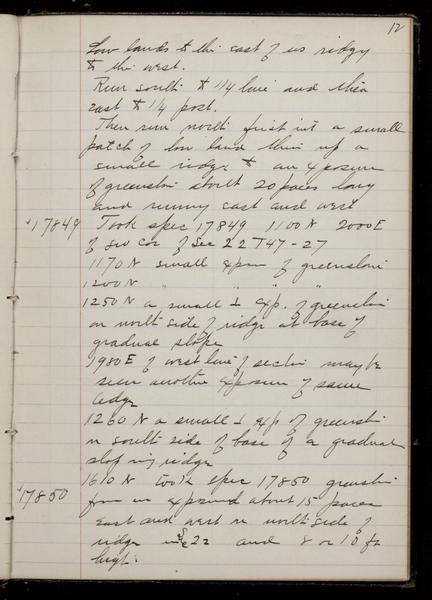 12
Low lands to the east of us ridgy
to the west.
Run south to 1/4 line and then
east to 1/4 post.
Then run north first into a small
patch of low land then up a
small ridge to an exposure
of greenston about 20 paces long
and running east and west
17849 Took spec 17849 1100 N 2000 E
of sw cor of Sec 22 T47-27
1170 N small expos of greenston
1200 N " " " "
1250 N a small ⊥ exp. of greenston
on north side of ridge at base of
gradual slope
1980 E of west line of section may be
seen another exposure of same
ledge
1260 N a small ⊥ exp of greenston
on south side of base of a gradual
sloping ridge
1610 N took spec 17850 greenston
17850 from an exposure about 15 paces
east and west on north side of
ridge 22 and 8 or 10 ft
high.